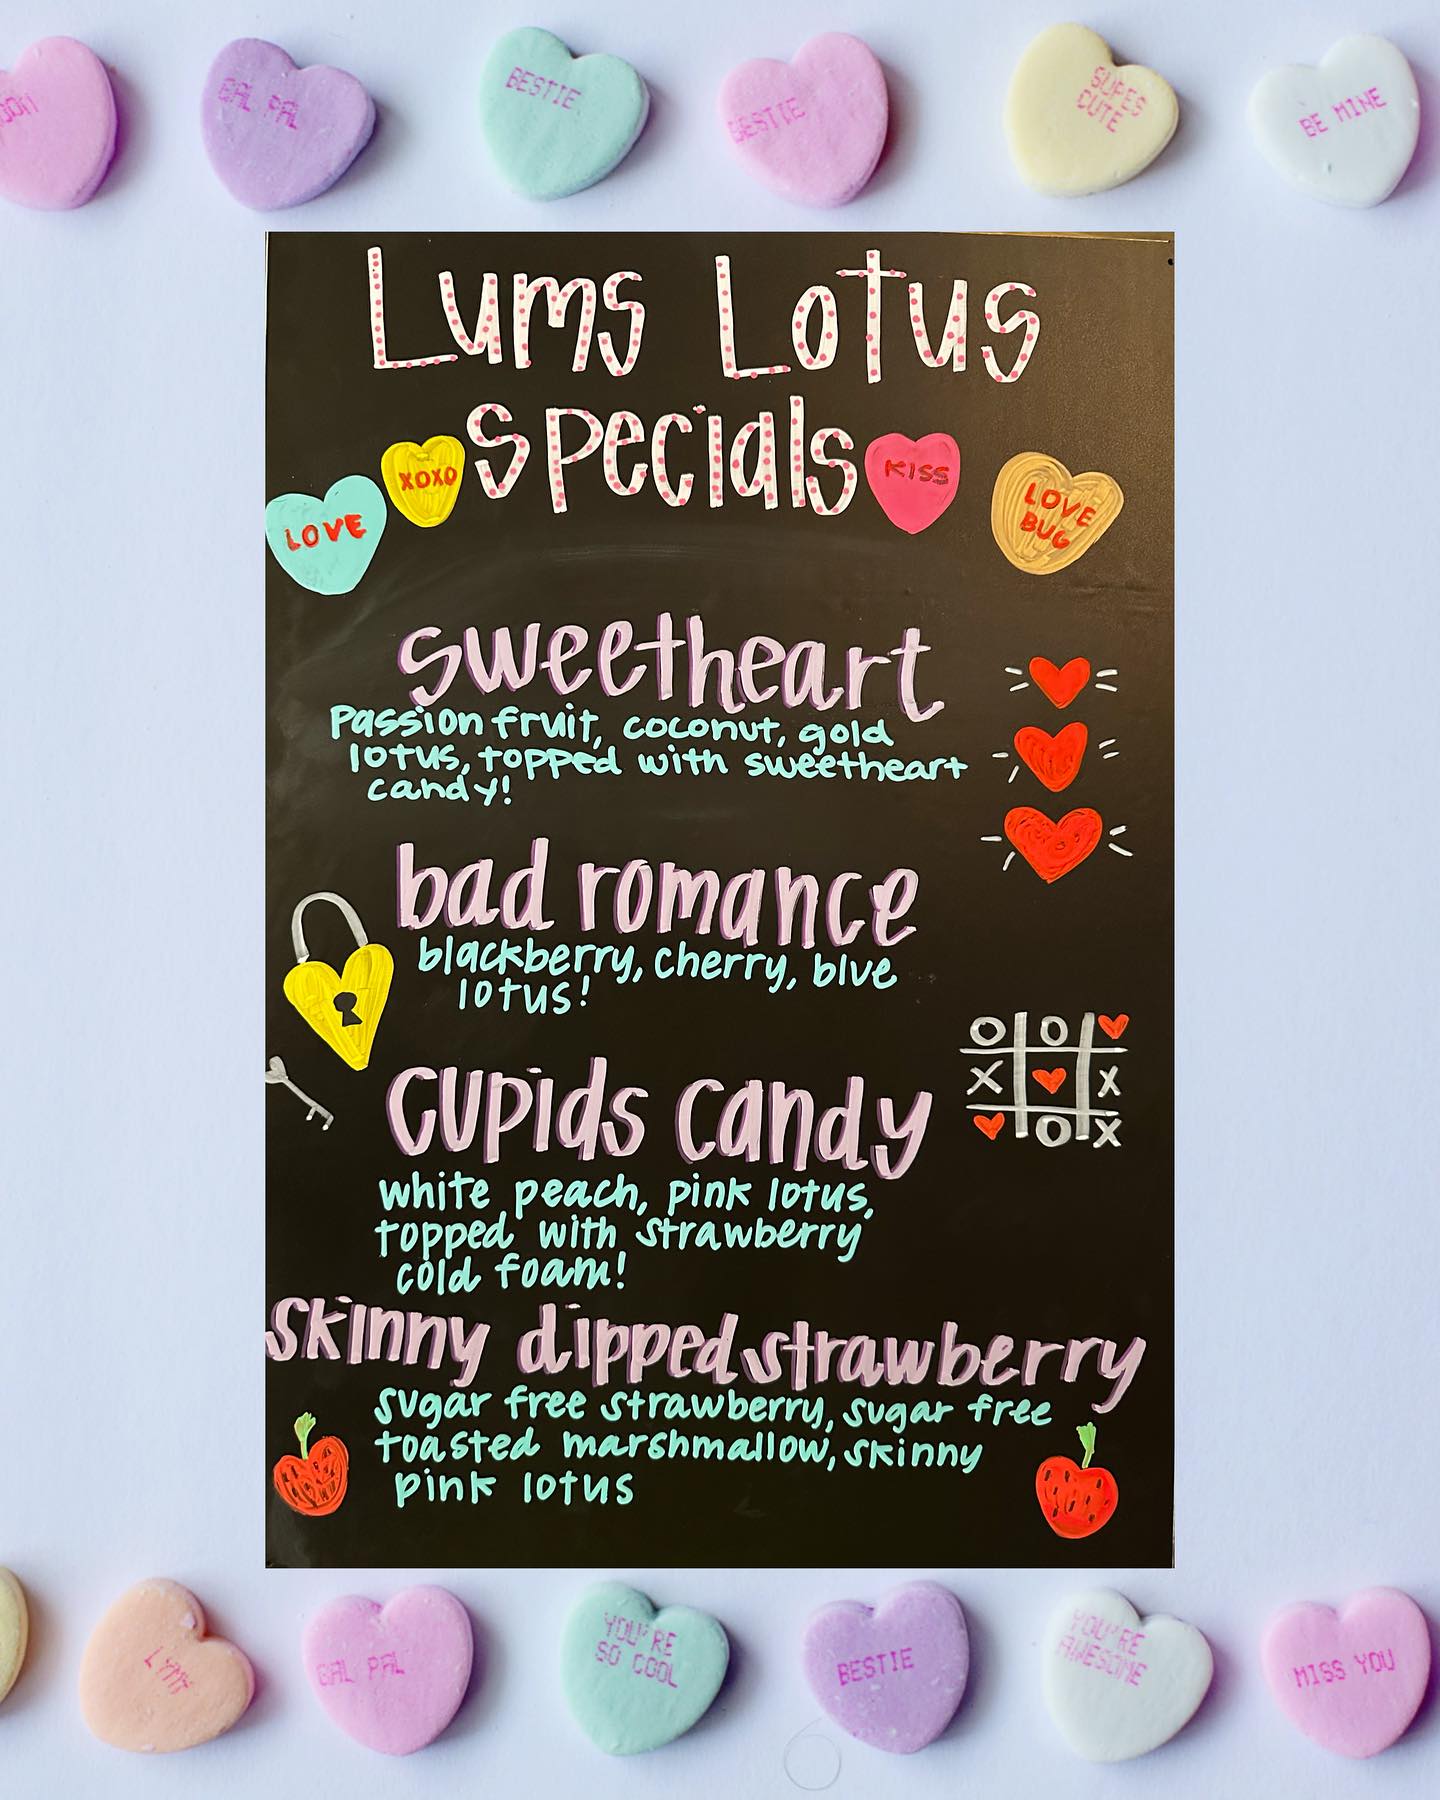 GAL PAL
BESTIE
BESTIE
SUPES
CUTE
BE MINE
Lums Lotus
Specials
LOVE
XOXO
KISS
LOVE
BUG
sweetheart
passion fruit, coconut, gold
lotus, topped with sweetheart
candy!
bad romance
blackberry, cherry, blue
lotus!
O O
X X
O X
cupids candy
white peach, pink lotus,
topped with strawberry
cold foam!
skinny dipped strawberry
sugar free strawberry, sugar free
toasted marshmallow, skinny
pink lotus
GAL PAL
YOU'RE
SO COOL
BESTIE
YOU'RE
AWESOME
MISS YOU